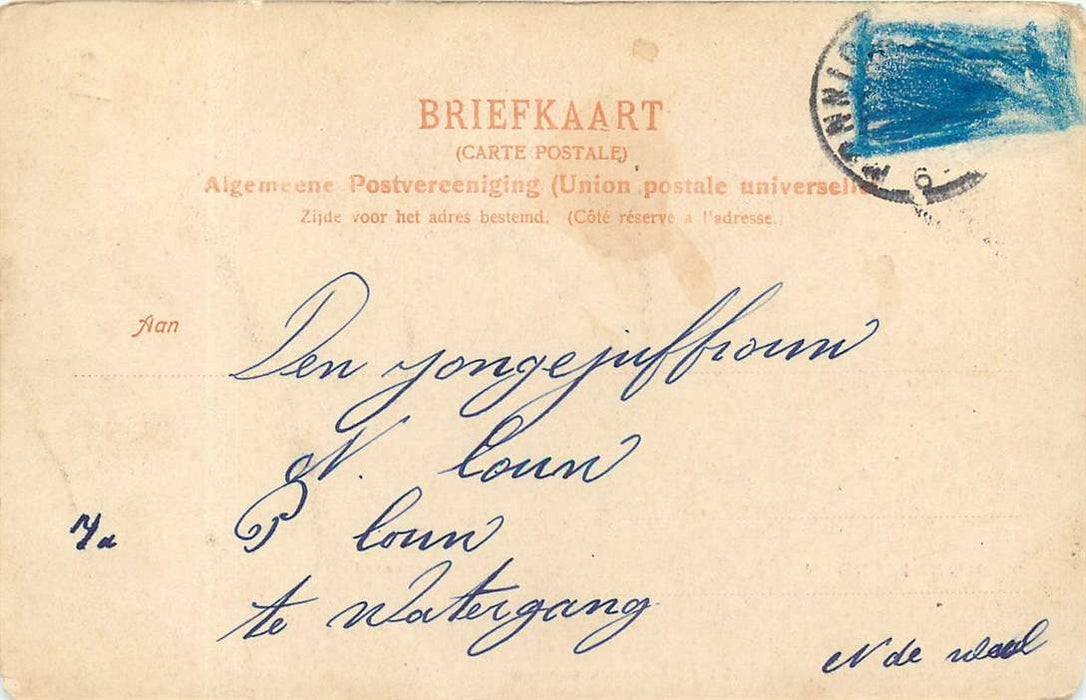 BRIEFKAART
(CARTE POSTALE)
Algemeene Postvereeniging (Union postale universelle
Zijde voor het adres bestemd. (Côté réservé à l'adresse.)
Aan
Den yongejuffrouw
N. louw
P louw
te Watergang
N de